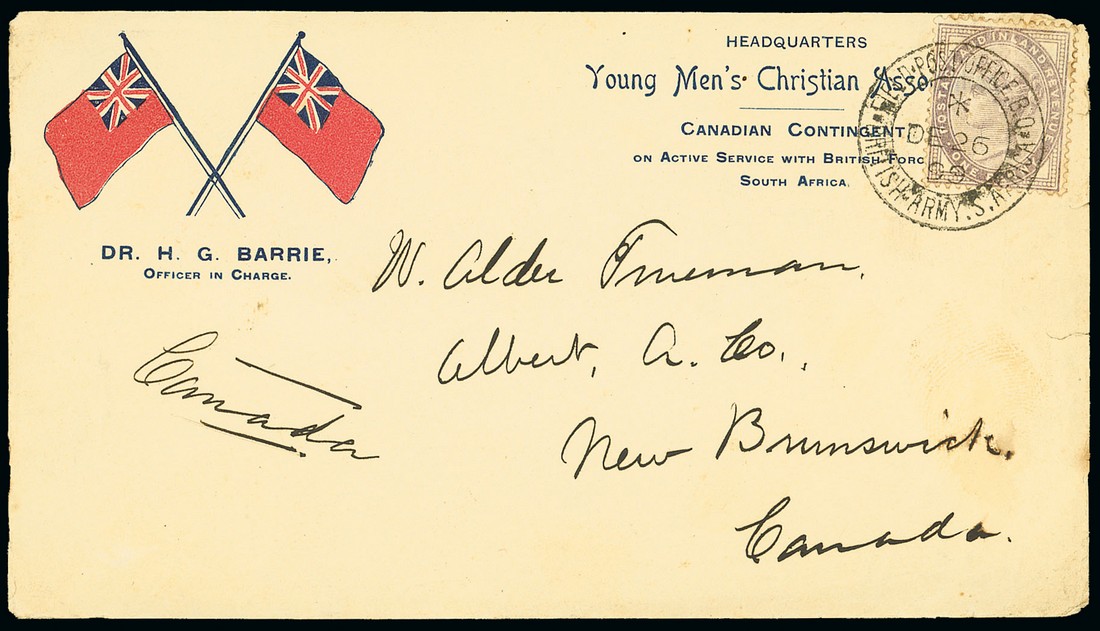 HEADQUARTERS
Young Men's Christian Asso
CANADIAN CONTINGENT
ON ACTIVE SERVICE WITH BRITISH FORC
SOUTH AFRICA.
FIELD·POST OFFICE·B.O.
BRITISH·ARMY.S.AFRICA
DE 26
POSTAGE AND INLAND REVENUE
ONE
DR. H. G. BARRIE,
OFFICER IN CHARGE.
W. Alder Trueman.
Albert, A. Co.,
New Brunswick.
Canada.
Canada